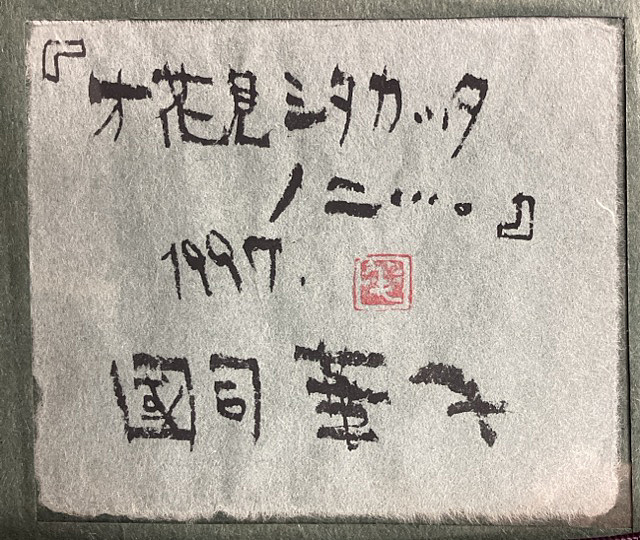 『オ花見シタカッタ
ノニ…。』
1997.
國司華子